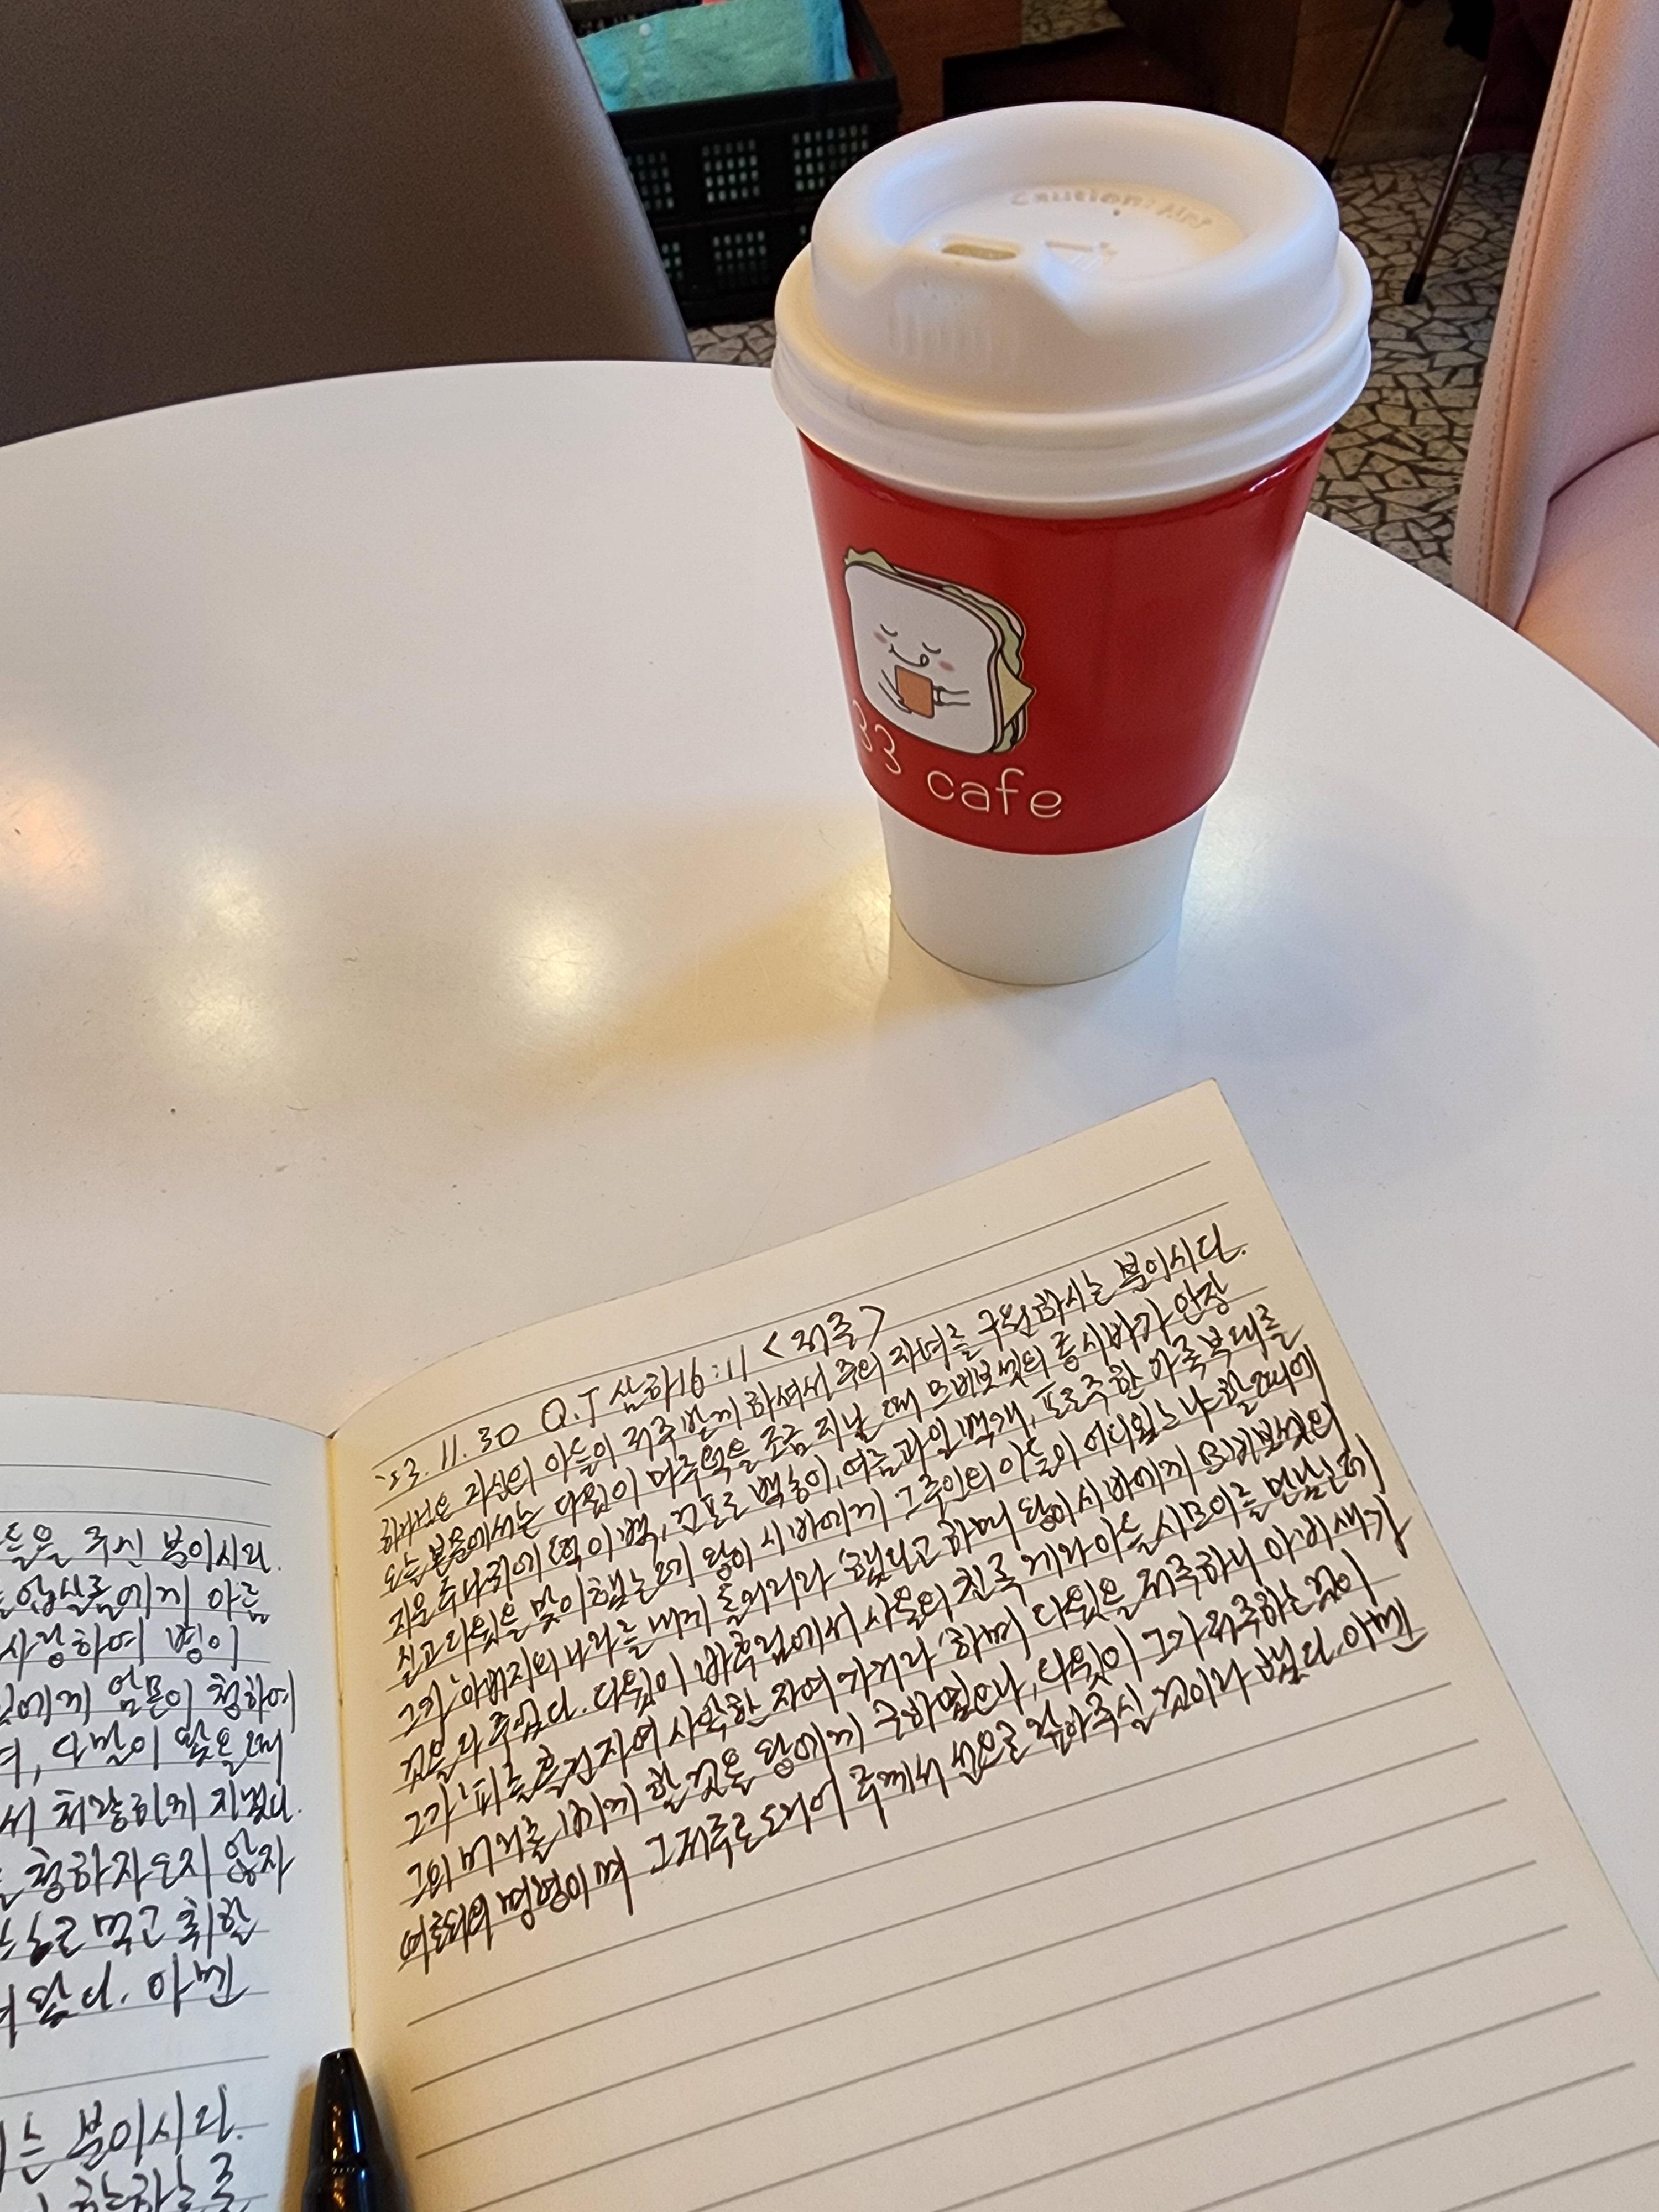 Caution: Hot
33 cafe
'23. 11. 30 Q.T 삼하16:11 <저주>
하나님은 자신의 아들이 저주받게 하셔서 주의 자녀를 구원하시는 분이시다.
오늘 본문에서는 다윗이 마루턱을 조금 지날 때 므비보셋의 종 시바가 안장
지운 두 나귀에 떡 이백, 건포도 백송이, 여름과일 백개, 포도주 한 가죽부대를
싣고 다윗을 맞이했는데 왕이 시바에게 그 주인의 아들이 어디있느냐 할 때에
그가 '아버지의 나라를 내게 돌려리라' 했다고 하며 왕이 시바에게 므비보셋의
것을 다 주었다. 다윗이 바후림에서 사울의 친족 게라 아들 시므이를 만났는데
그가 '피를 흘린 자여 사악한 자여 가거라' 하며 다윗을 저주하니 아비새가
그의 머리를 베게 할 것을 왕에게 구하였으나, 다윗이 그가 저주하는 것이
여호와의 명령이며 그 저주로 도리어 주께서 선으로 갚아주실 것이라 했다. 아멘
들을 주신 분이시다.
압살롬에게 아름
사랑하여 병이
에게 암논이 청하여
다말이 왔을 때
서 처량하게 지냈다.
청하자 듣지 않자
술을 먹고 취한
였다. 아멘
는 분이시다.